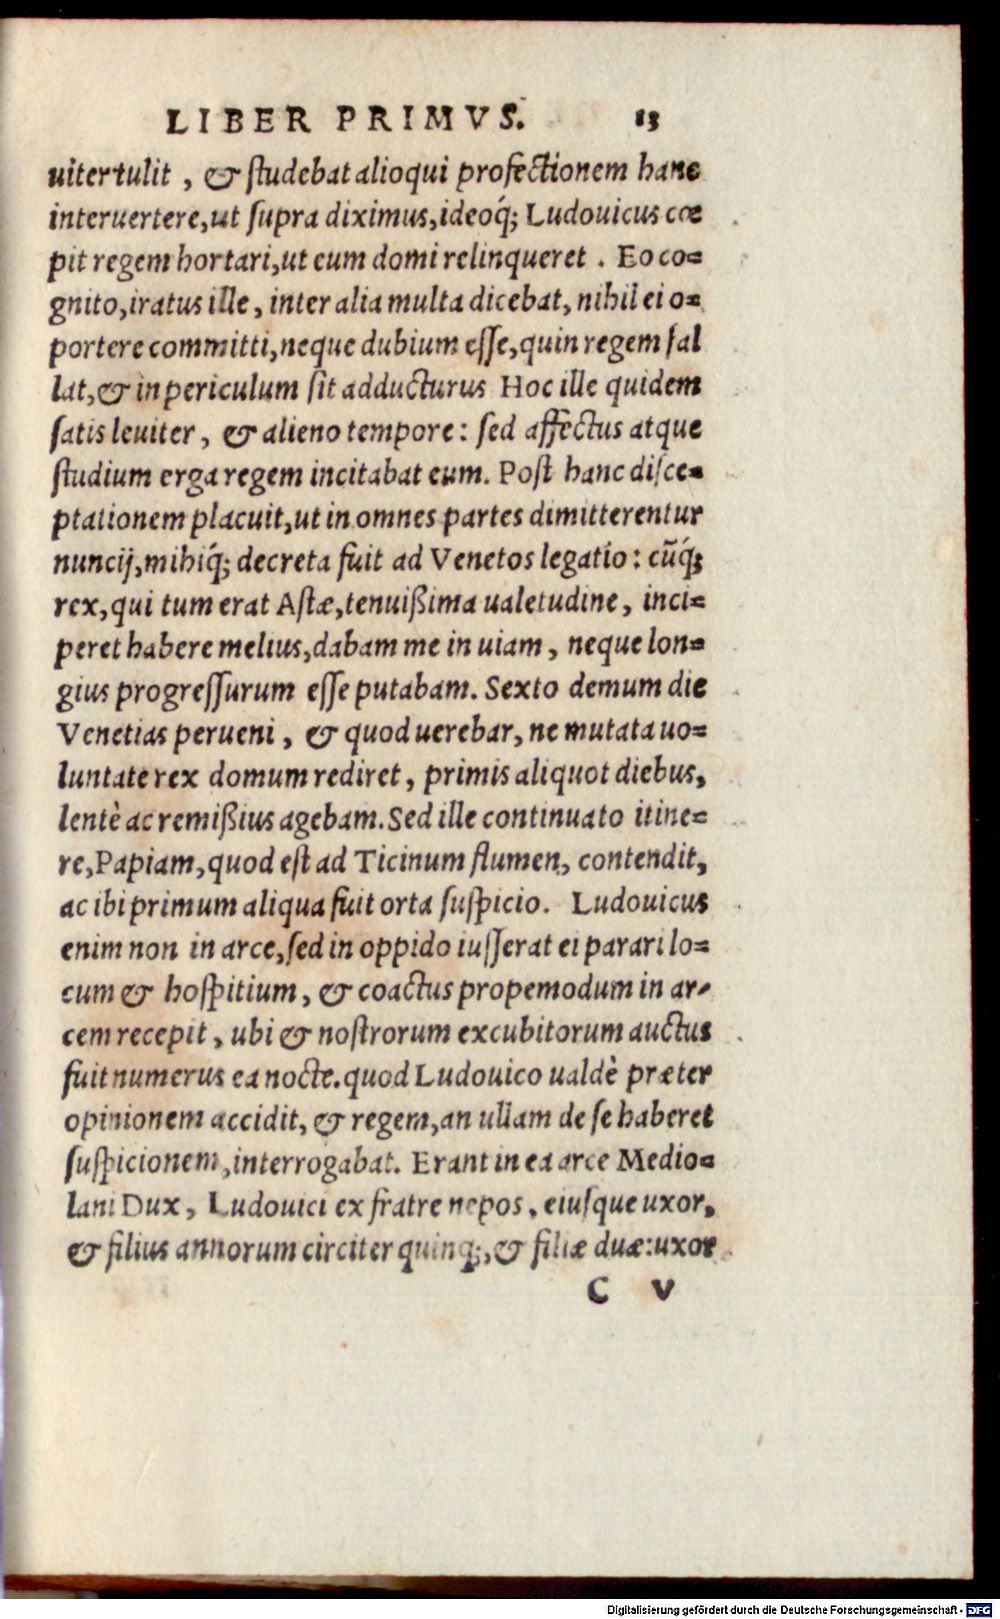 LIBER PRIMVS. 13
uiter tulit , & studebat alioqui profectionem hanc
interuertere,ut supra diximus,ideoq́; Ludouicus cœ
pit regem hortari,ut eum domi relinqueret . Eo co=
gnito,iratus ille, inter alia multa dicebat, nihil ei o=
portere committi,neque dubium esse,quin regem fal
lat,& in periculum sit adducturus Hoc ille quidem
satis leuiter, & alieno tempore: sed affectus atque
studium erga regem incitabat eum. Post hanc disce=
ptationem placuit,ut in omnes partes dimitterentur
nuncij,mihiq́; decreta fuit ad Venetos legatio: cũq́;
rex,qui tum erat Astæ,tenuißima ualetudine, inci=
peret habere melius,dabam me in uiam, neque lon=
gius progressurum esse putabam. Sexto demum die
Venetias perueni, & quod uerebar, ne mutata uo=
luntate rex domum rediret, primis aliquot diebus,
lentè ac remißius agebam. Sed ille continuato itine=
re,Papiam,quod est ad Ticinum flumen, contendit,
ac ibi primum aliqua fuit orta suspicio. Ludouicus
enim non in arce,sed in oppido iusserat ei parari lo=
cum & hospitium, & coactus propemodum in ar-
cem recepit, ubi & nostrorum excubitorum auctus
fuit numerus ea nocte. quod Ludouico ualdè præter
opinionem accidit, & regem,an ullam de se haberet
suspicionem,interrogabat. Erant in ea arce Medio=
lani Dux, Ludouici ex fratre nepos, eiusque uxor,
& filius annorum circiter quinq;,& filiæ duæ:uxor
C v
Digitalisierung gefördert durch die Deutsche Forschungsgemeinschaft - DFG